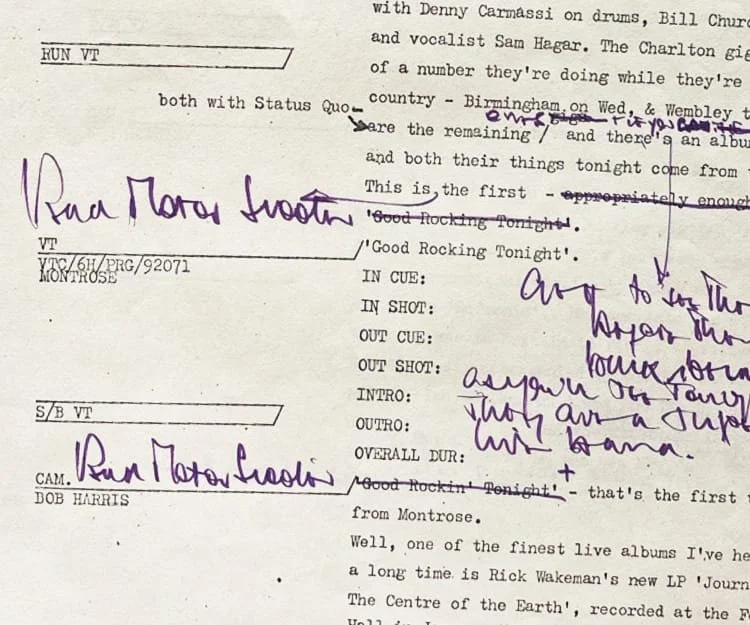 with Denny Carmassi on drums, Bill Churc
and vocalist Sam Hagar. The Charlton gig
RUN VT
of a number they're doing while they're
country - Birmingham on Wed, & Wembley t
both with Status Quo
are the remaining / and there's an albu
and both their things tonight come from
This is, the first - appropriately enough
Bad Motor Scooter
'Good Rocking Tonight'.
VT
/'Good Rocking Tonight'.
VTC/6H/PRG/92071
MONTROSE
IN CUE:
IN SHOT:
OUT CUE:
OUT SHOT:
INTRO:
S/B VT
OUTRO:
live band.
OVERALL DUR:
CAM. Bad Motor Scooter
'Good Rockin' Tonight' - that's the first t
BOB HARRIS
from Montrose.
Well, one of the finest live albums I've he
a long time is Rick Wakeman's new LP 'Journ
The Centre of the Earth', recorded at the F